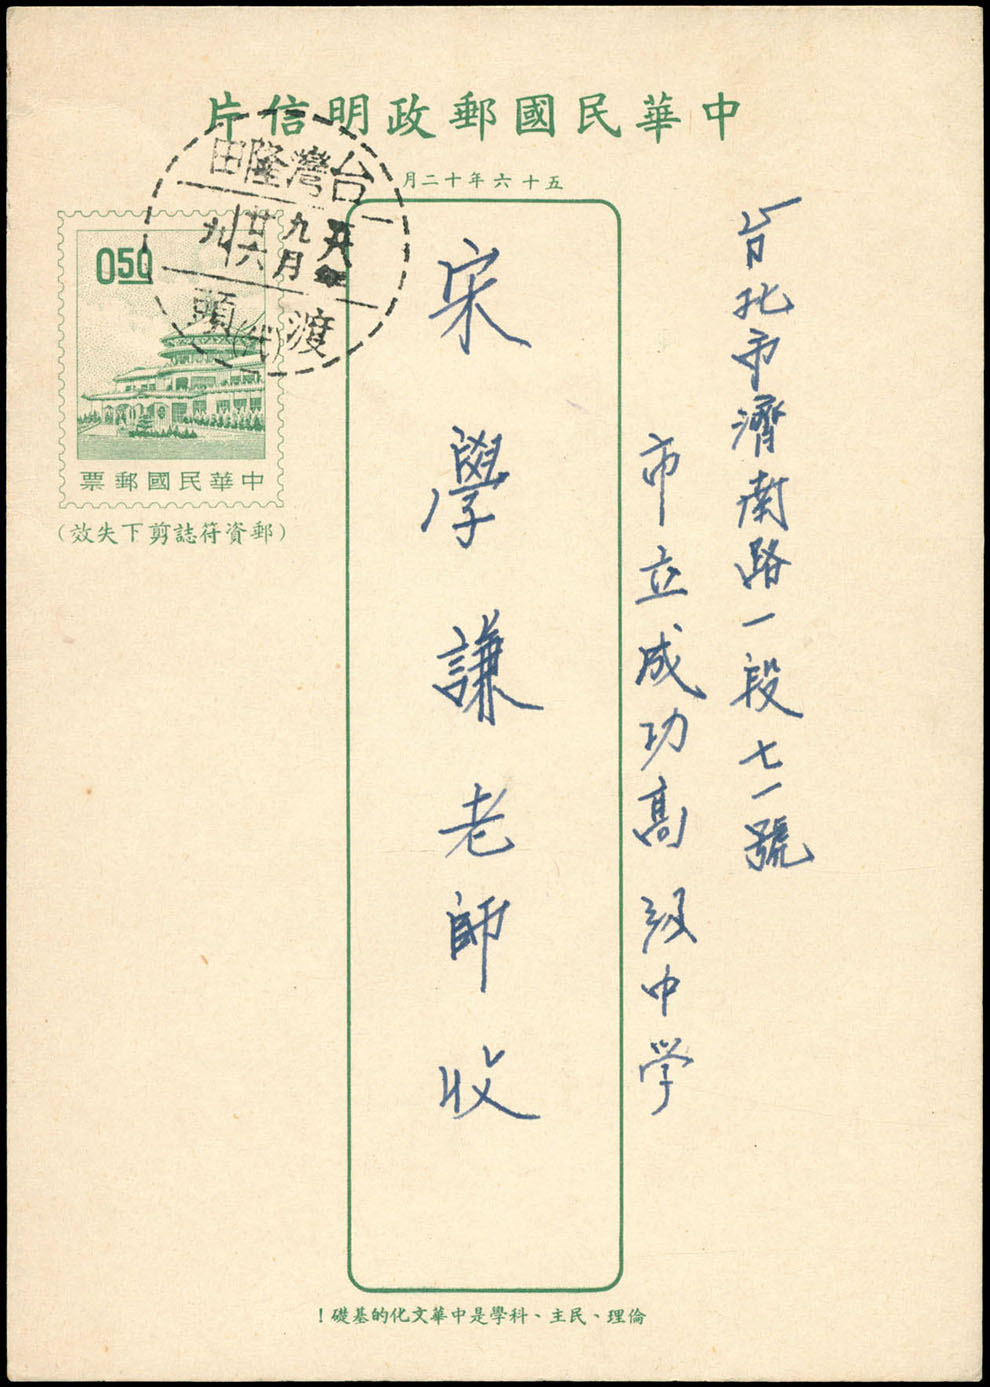 中華民國郵政明信片
五十六年十二月
台灣隆田
九月
廿六
九
渡頭
(代)
0.50
中華民國郵票
(郵資符誌剪下失效)
台北市濟南路一段七一號
市立成功高級中学
宋學謙老師收
倫理、民主、科學是中華文化的基礎!